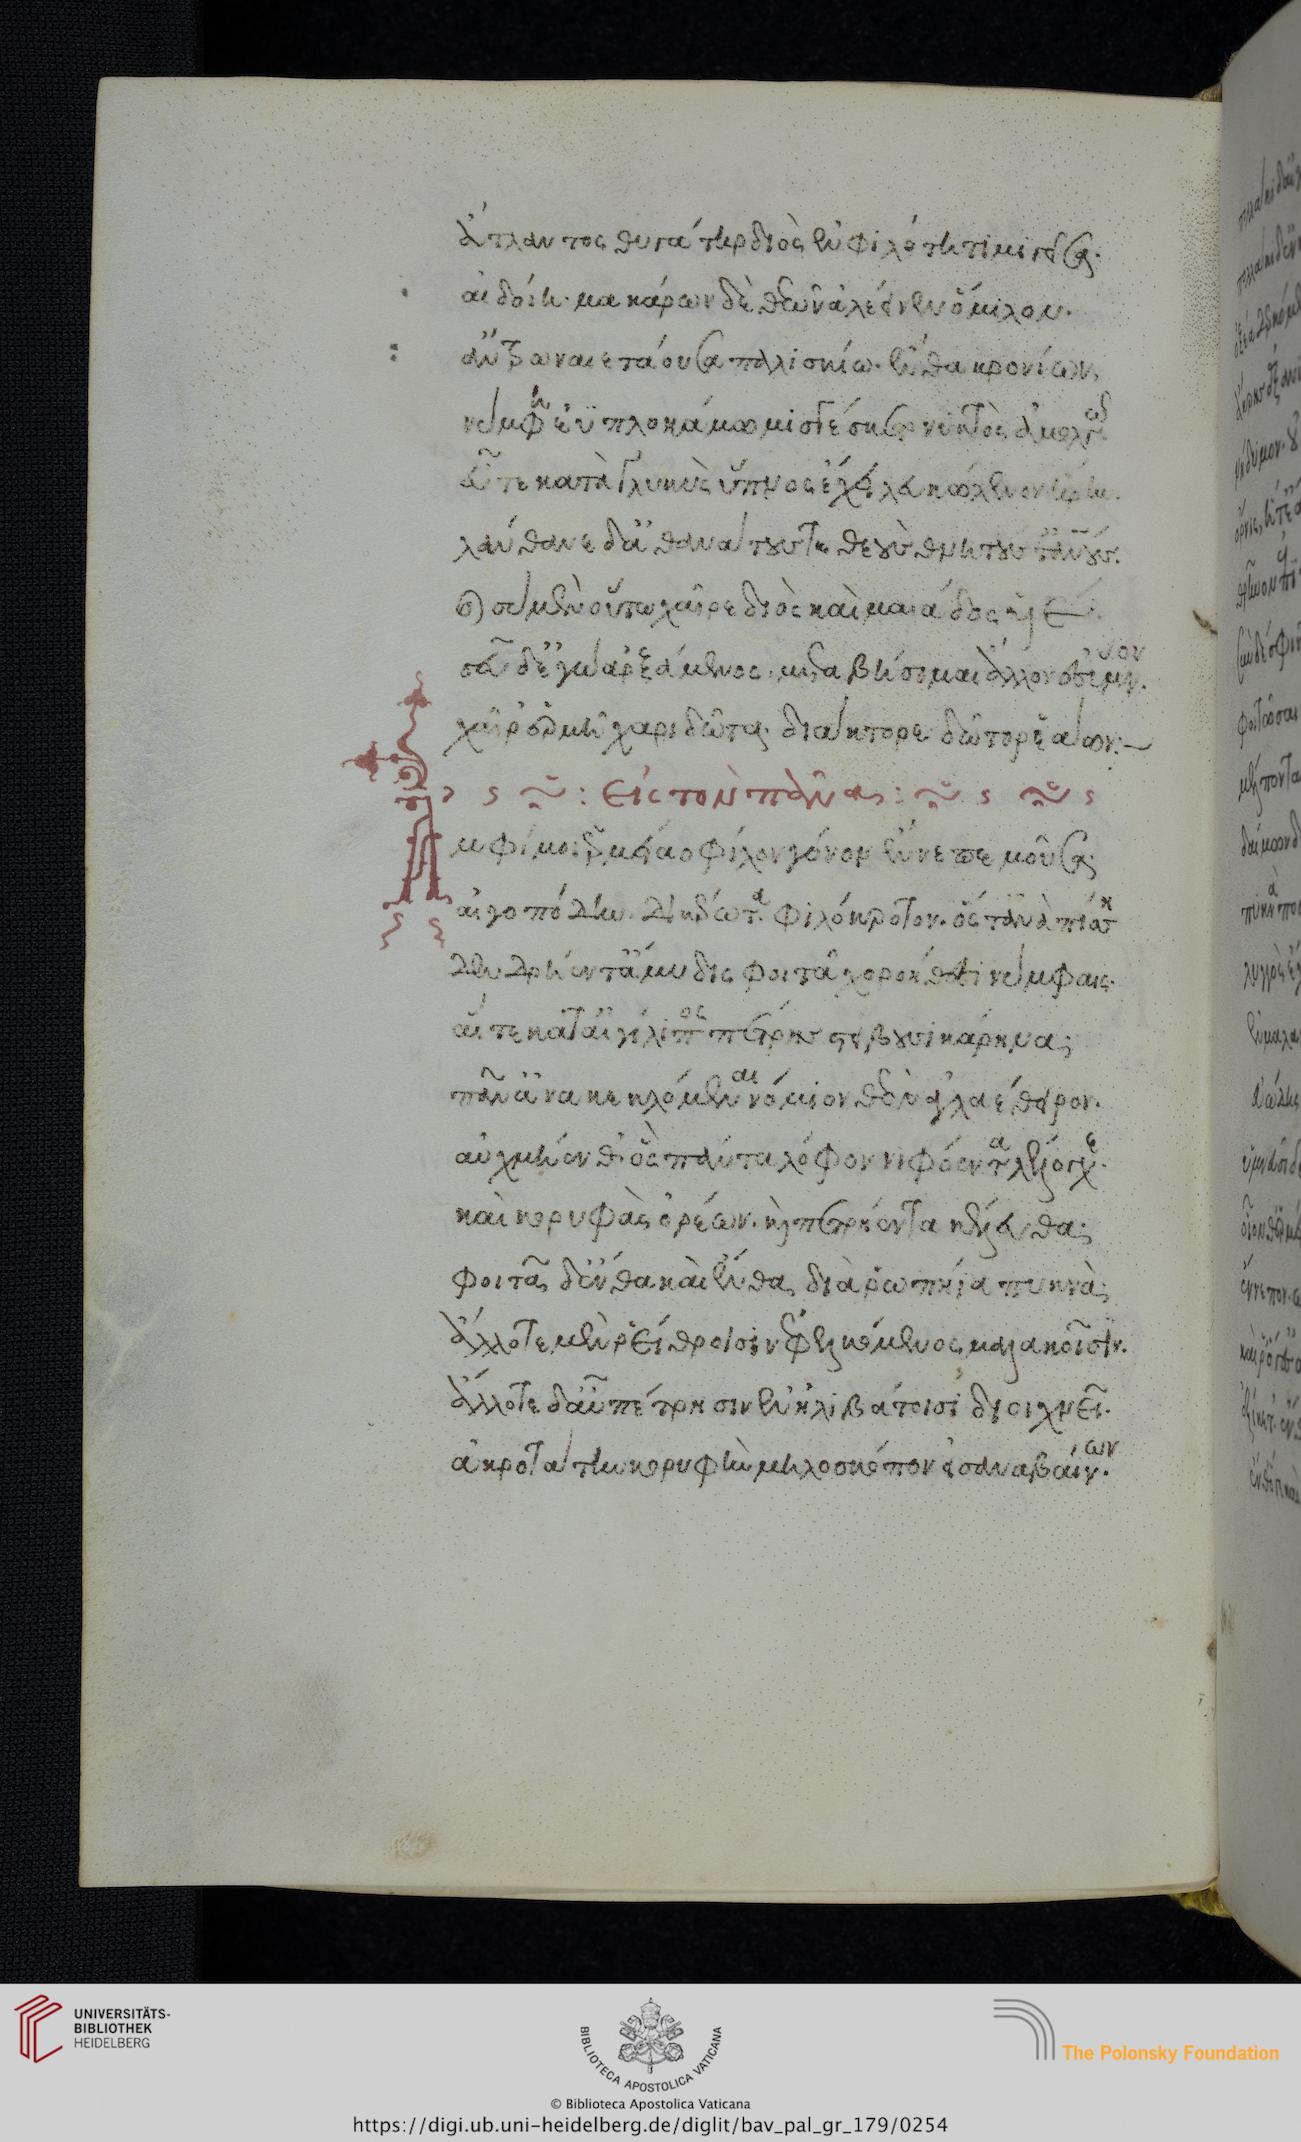 ἄτλαντος θυγάτηρ διὸς ἐν φιλότητι μιγεῖσα·
αἰδοίη· μακάρων δὲ θεῶν ἀλέεινεν ὅμιλον·
ἄντρω ναιετάουσα παλισκίω· ἔνθα κρονίων,
νύμφη ἐϋπλοκάμω μισγέσκετο νυκτὸς ἀμολγῶ
εὖτε κατὰ γλυκὺς ὕπνος ἔχοι λευκώλενον ἥρην.
λάνθανε δ' ἀθανάτους τε θεοὺς θνητούς τ' ἀνθρώπους.
καὶ σὺ μὲν οὕτω χαῖρε διὸς καὶ μαιάδος υἱέ·
σεῦ δ' ἐγὼ ἀρξάμενος· μεταβήσομαι ἄλλον ἐς ὕμνον.
χαῖρ' ἑρμῆ χαριδῶτα· διάκτορε δῶτορ ἐάων:
εἰς τὸν πᾶνα:
Ἀμφί μοι ἑρμείαο φίλον γόνον ἔννεπε μοῦσα;
αἰγοπόδην. δικέρωτα. φιλόκροτον. ὅς τ' ἀνὰ πίση
δενδρήεντ' ἄμυδις φοιτᾶ χοροήθεσι νύμφαις.
αἵ τε κατ' αἰγίλιπος πέτρης στείβουσι κάρηνα;
πᾶν' ἀνακεκλόμεναι νόμιον θεὸν ἀγλαέθειρον.
αὐχμήενθ' ὃς πάντα λόφον νιφόεντα λέλογχε·
καὶ κορυφὰς ὀρέων. καὶ πετρήεντα κέλευθα;
φοιτᾶ δ' ἔνθα καὶ ἔνθα διὰ ῥωπήια πυκνὰ;
ἄλλοτε μὲν ῥείθροισιν ἐφελκόμενος μαλακοῖσιν.
ἄλλοτε δ' αὖ πέτρησιν ἐν ἠλιβάτοισι διοιχνεῖ.
ἀκροτάτην κορυφὴν μηλοσκόπον εἰσαναβαίνων.
UNIVERSITÄTS-
BIBLIOTHEK
HEIDELBERG
BIBLIOTECA APOSTOLICA VATICANA
The Polonsky Foundation
© Biblioteca Apostolica Vaticana
https://digi.ub.uni-heidelberg.de/diglit/bav_pal_gr_179/0254